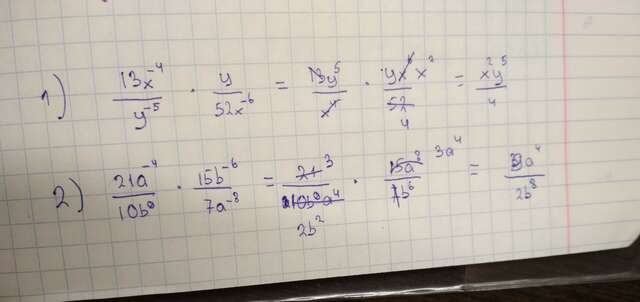 1) 13x⁻⁴/y⁻⁵ · y/52x⁻⁶ = 13y⁵/x⁴ · yx⁶ x²/52 4 = x²y⁵/4
2) 21a⁻⁴/10b⁸ · 15b⁻⁶/7a⁻⁸ = 21 3/10b⁸a⁴ 2b² · 15a⁸ 3a⁴/7b⁶ = 3a⁴/2b⁸